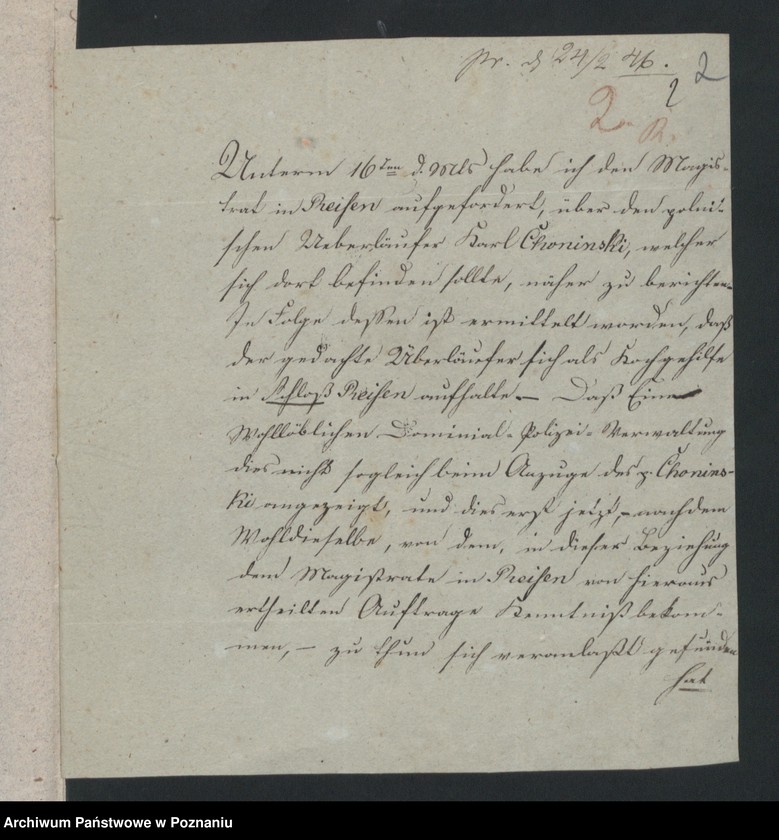 pr. d 24/2 46. 2
2
2. R.
Unterm 16ten d. Mts habe ich den Magis-
trat in Reisen aufgefordert, über den polni-
schen Ueberläufer Karl Choninski, welcher
sich dort befinden sollte, näher zu berichten.
In Folge dessen ist ermittelt worden, daß
der gedachte Überläufer sich als Kochgehilfe
in Schloß Reisen aufhalte. — Daß Eine
Wohllöblichen Dominial-Polizei-Verwaltung
dies nicht sogleich beim Anzuge des p. Chonins-
ki angezeigt, und dies erst jetzt, – nachdem
Wohldieselbe, von dem, in dieser Beziehung
dem Magistrate in Reisen von hieraus
ertheilten Auftrage Kenntniß bekom-
men, – zu thun sich veranlaßt gefunden
hat
Archiwum Państwowe w Poznaniu